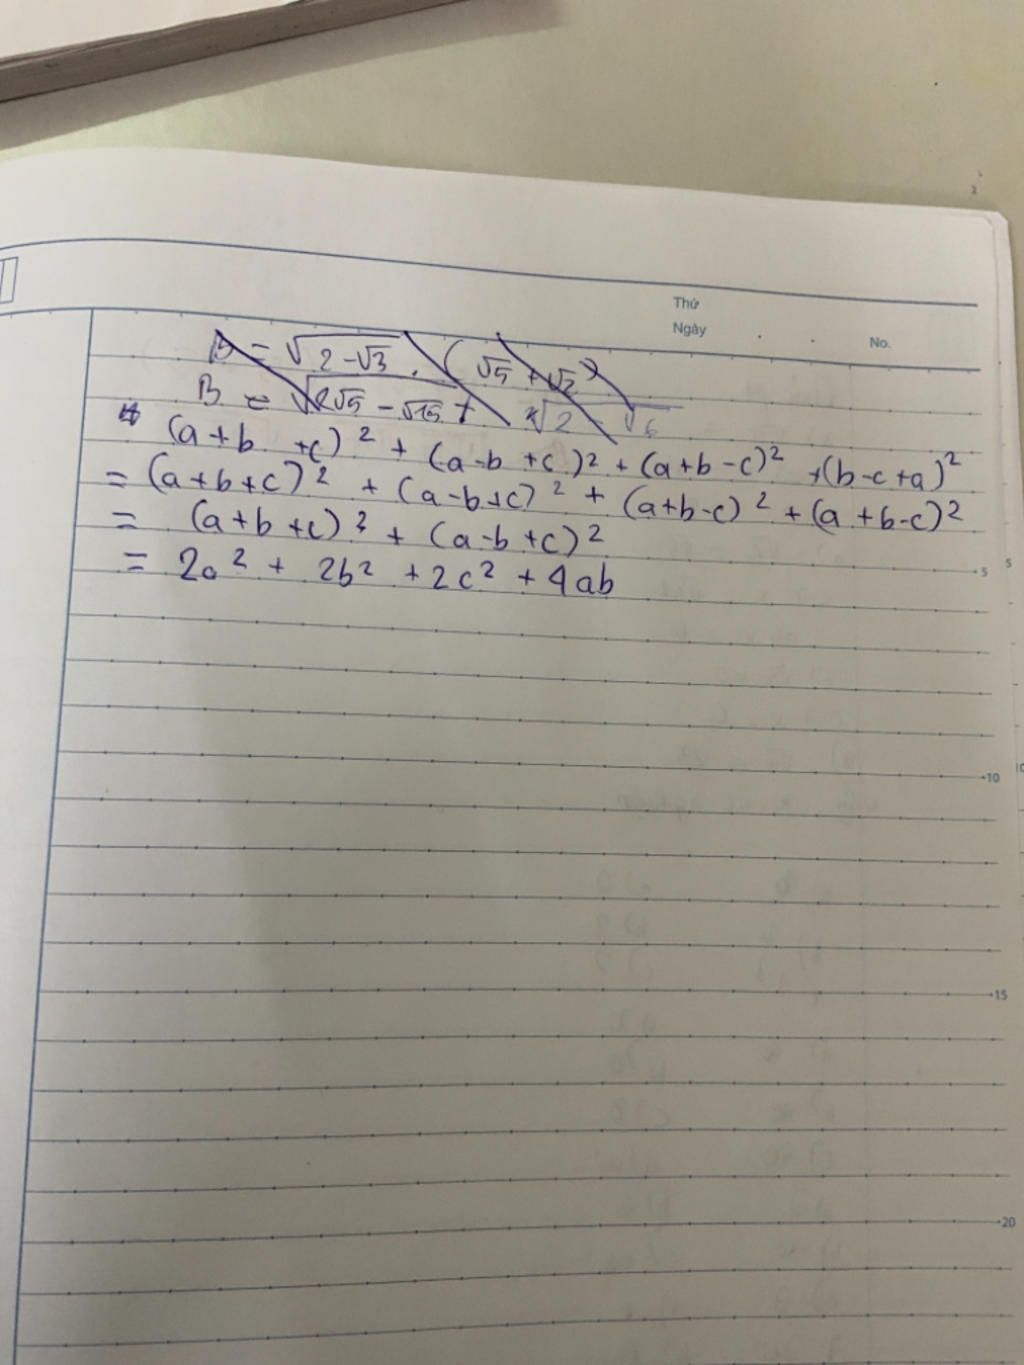 Thứ
Ngày
No.
B = √2-√3 . (√5 + √2)
B = √2√5 - √15 + √2 - √6
(a+b +c)² + (a-b +c)² + (a+b-c)² +(b-c+a)²
= (a+b+c)² + (a-b+c)² + (a+b-c)² + (a+b-c)²
= (a+b+c)² + (a-b+c)²
= 2a² + 2b² + 2c² + 4ab
5
10
15
20